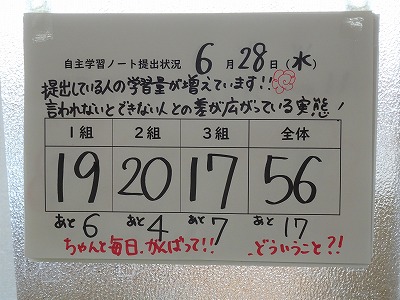 自主学習ノート提出状況 6月28日(水)
提出している人の学習量が増えています!!
言われないとできない人との差が広がっている実態!
1組 2組 3組 全体
19 20 17 56
あと6 あと4 あと7 あと17
ちゃんと毎日、がんばって!! どういうこと?!